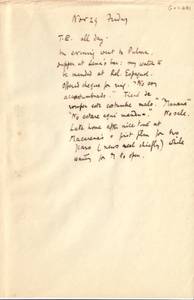 Nov 29 Friday
T.E. all day.
In evening went to Palma,
supper at Lena's bar: my watch to
be mended at Rel. Espagnol.
Offered cheque for ring. "No soy
acostumbrado." Tired de
romper este costumbre malo. "Manana"
"No estare aqui manana." No sale.
Late home after nice time at
Macarena's & first film for two
years (news reel chiefly) while
waiting for to open.